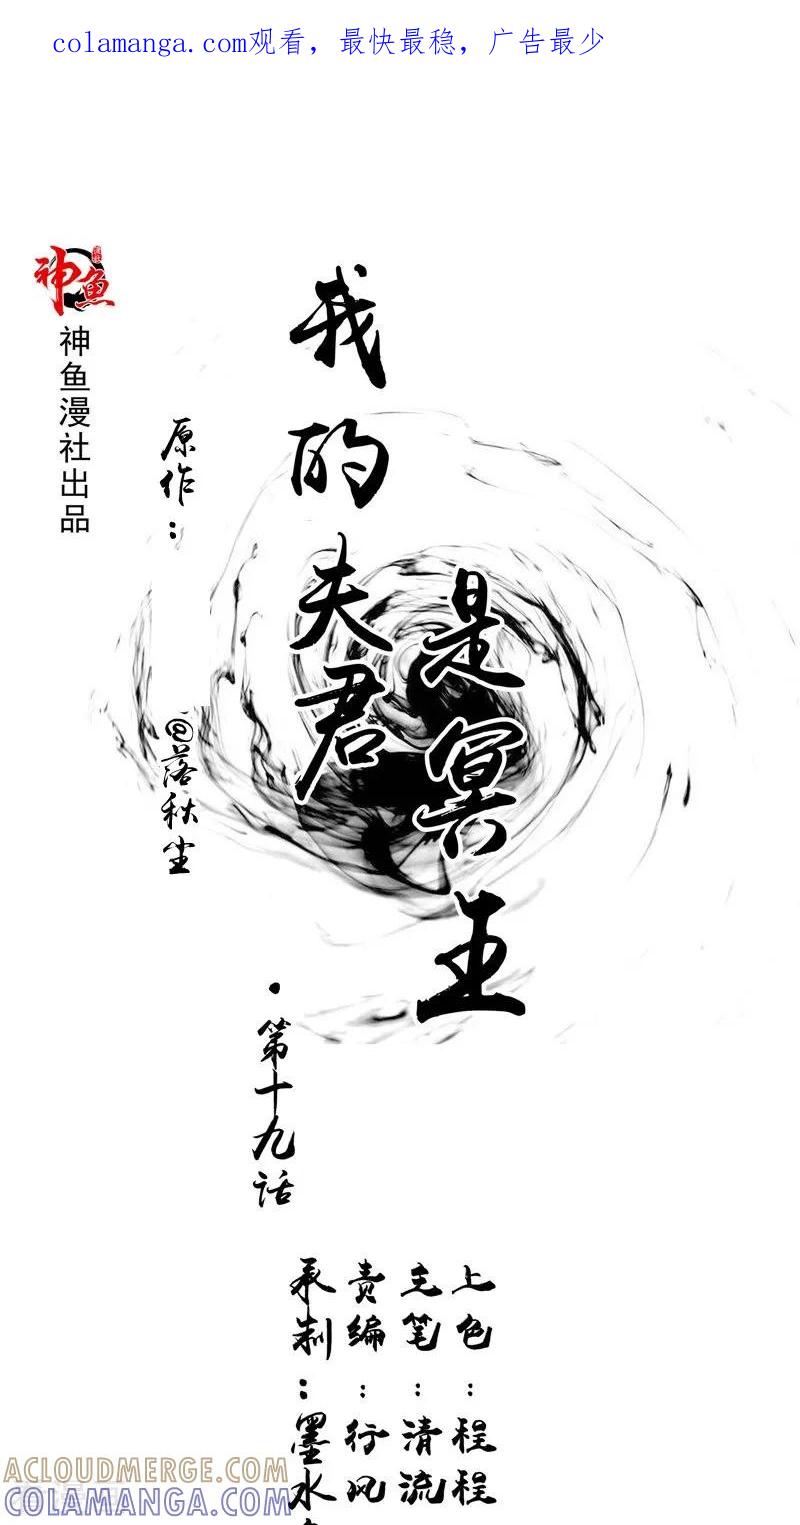 colamanga.com观看，最快最稳，广告最少
神鱼
神鱼漫社出品
原作：
@落秋尘
我的夫君
是冥王
·第十九话
承制：墨水
责编：行风
主笔：清流
上色：程程
ACLOUDMERGE.COM
COLAMANGA.COM